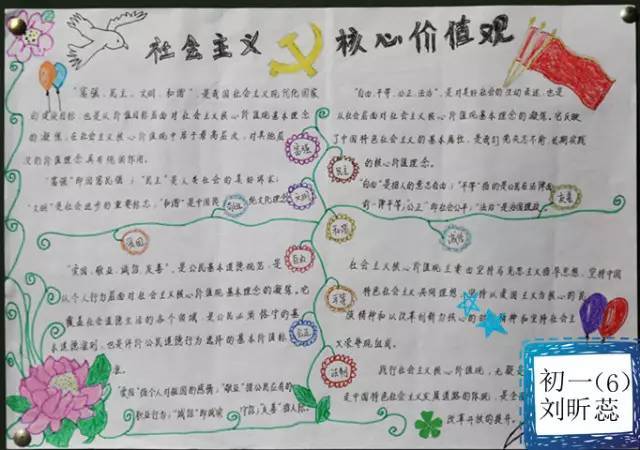 社会主义 核心价值观
"富强、民主、文明、和谐",是我国社会主义现代化国家
的建设目标,也是从价值目标层面对社会主义核心价值观基本理念
的凝练,在社会主义核心价值观中居于最高层次,对其他层
次的价值理念具有统领作用。
"富强"即国富民强;"民主"是人类社会的美好诉求;
"文明"是社会进步的重要标志,"和谐"是中国
文化理念
"自由、平等、公正、法治",是对美好社会的生动表述,也是
从社会层面对社会主义核心价值观基本理念的凝练。它反映
了中国特色社会主义的基本属性,是我们党矢志不渝、长期实践
的核心价值理念。
"自由"是指人的意志自由;"平等"指的是公民在法律面
前一律平等;"公正"即社会公平;"法治"是治国理政
富强
民主
文明
和谐
自由
平等
法制
爱国
诚信
友善
"爱国、敬业、诚信、友善",是公民基本道德规范,是
从个人行为层面对社会主义核心价值观基本理念的凝练。它
覆盖社会道德生活的各个领域,是公民必须恪守的基
本道德准则,也是评价公民道德行为选择的基本价值标
准。
"爱国"指个人对祖国的感情,"敬业"指公民应有的
职业行为,"诚信"即诚实 守信,"友善"指人际
社会主义核心价值观主要由坚持马克思主义指导思想,坚持中国
特色社会主义共同理想,坚持以爱国主义为核心的民
族精神和以改革创新为核心的 精神和坚持社会主
义荣辱观组成。
践行社会主义核心价值观,无疑是
是中国特色社会主义发展道路的体现,是全面
改革开放的提升。
初一(6)
刘昕蕊